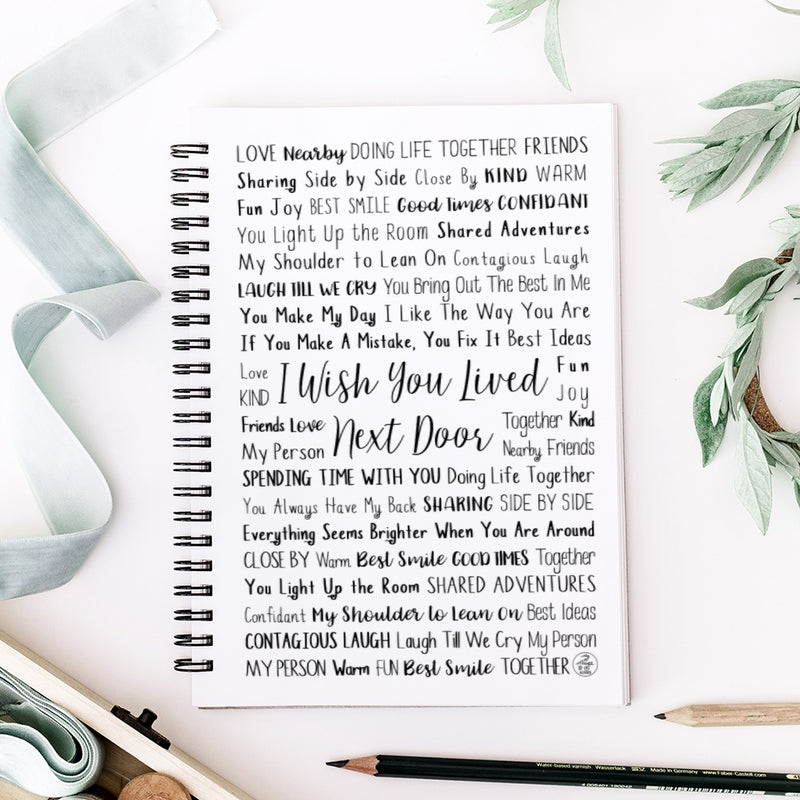 LOVE Nearby DOING LIFE TOGETHER FRIENDS
Sharing Side by Side Close By KIND WARM
Fun Joy BEST SMILE Good Times CONFIDANT
You Light Up the Room Shared Adventures
My Shoulder to Lean On Contagious Laugh
LAUGH TILL WE CRY You Bring Out The Best In Me
You Make My Day I Like The Way You Are
If You Make A Mistake, You Fix It Best Ideas
Love
KIND
I Wish You Lived
Fun
Joy
Friends Love
My Person
Next Door
Together Kind
Nearby Friends
SPENDING TIME WITH YOU Doing Life Together
You Always Have My Back SHARING SIDE BY SIDE
Everything Seems Brighter When You Are Around
CLOSE BY Warm Best Smile GOOD TIMES Together
You Light Up the Room SHARED ADVENTURES
Confidant My Shoulder to Lean On Best Ideas
CONTAGIOUS LAUGH Laugh Till We Cry My Person
MY PERSON Warm FUN Best Smile TOGETHER
Water-based varnish Wasserlack Made in Germany www.Faber-Castell.com